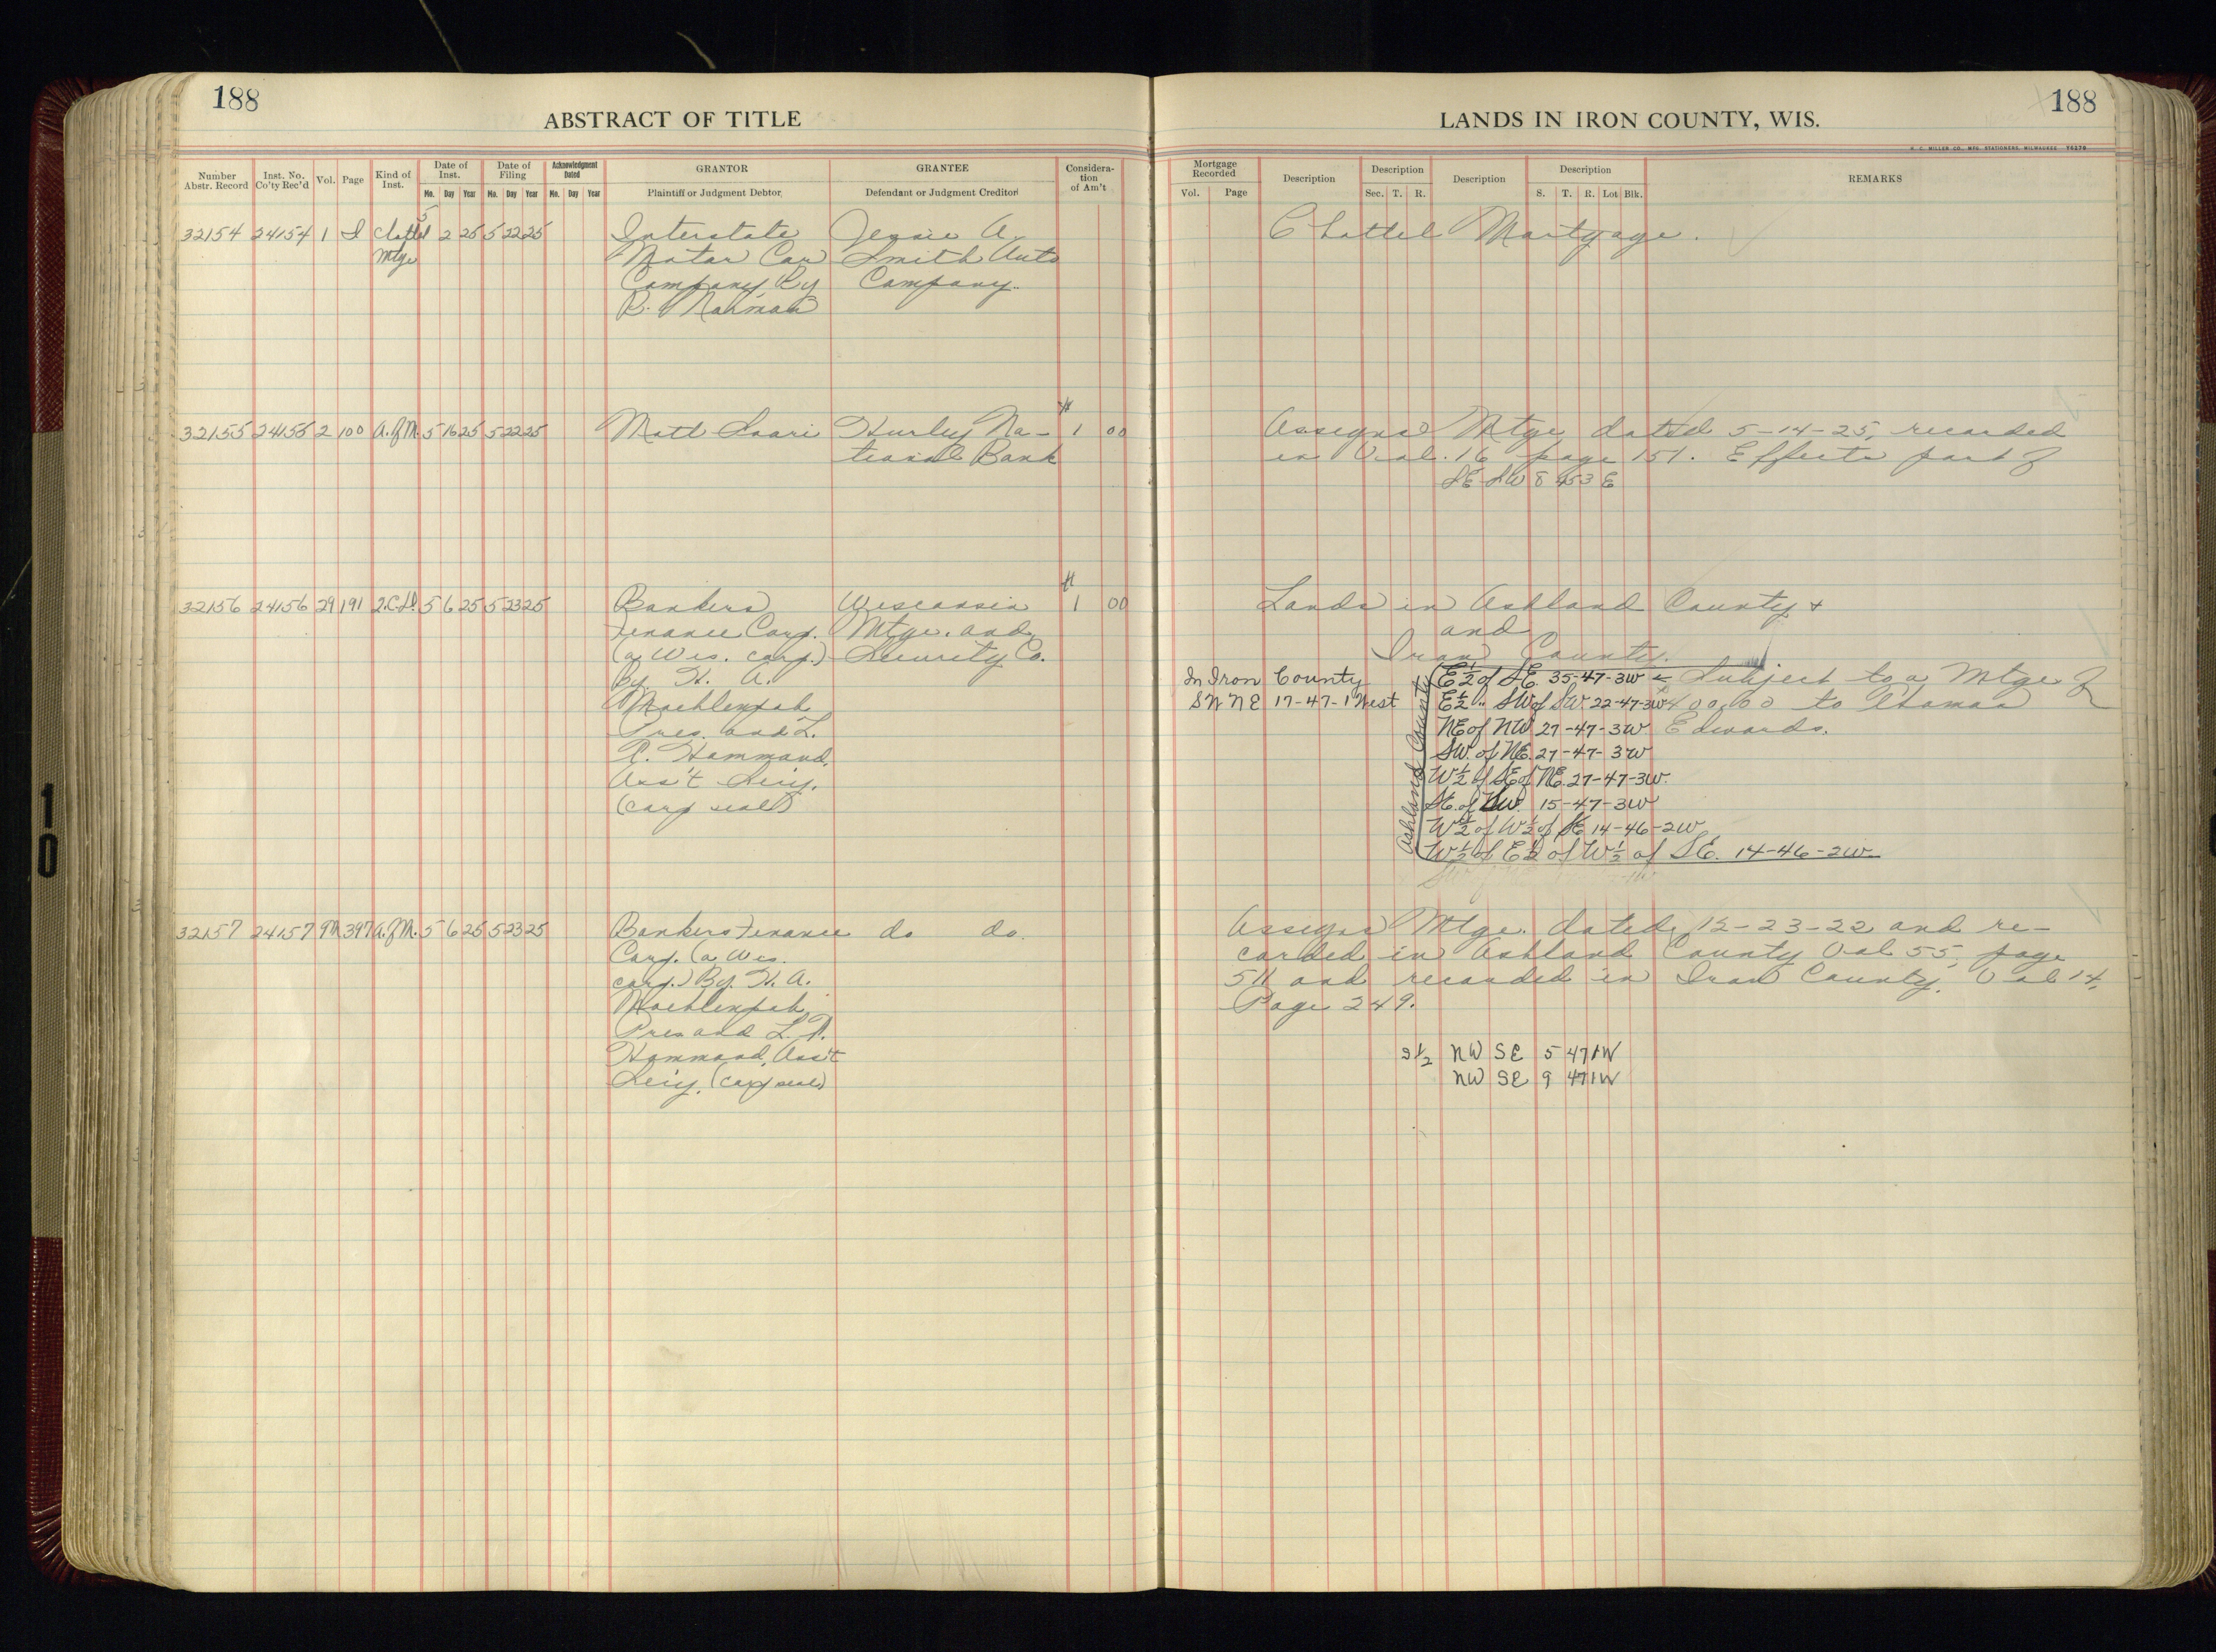 188
ABSTRACT OF TITLE
Number Abstr. Record
Inst. No. Co'ty Rec'd
Vol.
Page
Kind of Inst.
Date of Inst.
Mo. Day Year
Date of Filing
Mo. Day Year
Acknowledgment Dated
Mo. Day Year
GRANTOR
Plaintiff or Judgment Debtor
GRANTEE
Defendant or Judgment Creditor
Considera-
tion
of Am't
32154 24154 1 I Chattel 5 2 25 5 22 25 Interstate Jessie A.
Mtge Motor Car Smith Auto
Company By Company.
R.
32155 24155 2 100 A. of M. 5 16 25 5 22 25 Matt Saari Hurley Na- $1 00
tional Bank
32156 24156 29 191 2.C.D. 5 6 25 5 23 25 Bankers Wisconsin $1 00
Finance Corp. Mtge. and
(a Wis. corp.) Security Co.
By H. A.
Moehlenpah
Pres. and L.
R. Hammond,
Ass't Secy.
(corp seal)
32157 24157 9M 397 A. of M. 5 6 25 5 23 25 Bankers Finance do do.
Corp. (a Wis.
corp.) By H. A.
Moehlenpah
Pres and L. R.
Hammond, Ass't
Secy. (corp seal)
LANDS IN IRON COUNTY, WIS.
188
H. C. MILLER CO., MFG. STATIONERS, MILWAUKEE 76279
Mortgage Recorded
Vol. Page
Description
Description
Sec. T. R.
Description
Description
S. T. R. Lot Blk.
REMARKS
Chattel Mortgage.
Assigns Mtge dated 5-14-25, recorded
in Vol. 16 page 151. Effects part of
SE SW 8 45 3 E
Lands in Ashland County +
and
Iron County.
In Iron County
SW NE 17-47-1 West
Ashland County
E½ of SE. 35-47-3W Subject to a Mtge of
E½ " SW of SW. 22-47-3W 400.00 to Thomas
NE of NW 27-47-3W Edwards.
SW. of NE. 27-47-3W
W½ of SE of NE. 27-47-3W.
SE. of NW. 15-47-3W
W½ of W½ of SE 14-46-2W
W½ of E½ of W½ of SE. 14-46-2W
Assigns Mtge. dated 12-23-22 and re-
corded in Ashland County Vol 55, page
511 and recorded in Iron County, Vol 14,
Page 249.
S½ NW SE 5 47 1W
NW SE 9 47 1W
10